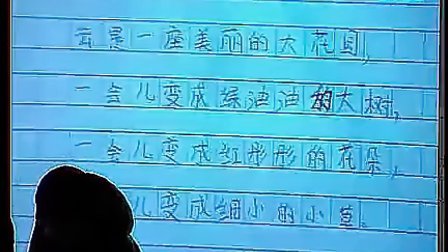 云是一座美丽的大花园,
一会儿变成绿油油的大树,
一会儿变成红彤彤的花朵,
儿变成细小的小草.